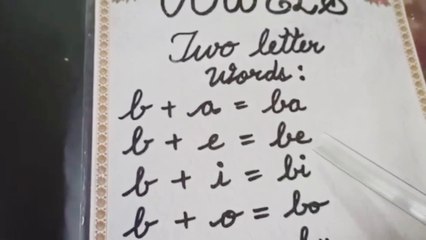 VOWELS
Two letter
words:
b + a = ba
b + e = be
b + i = bi
b + o = bo